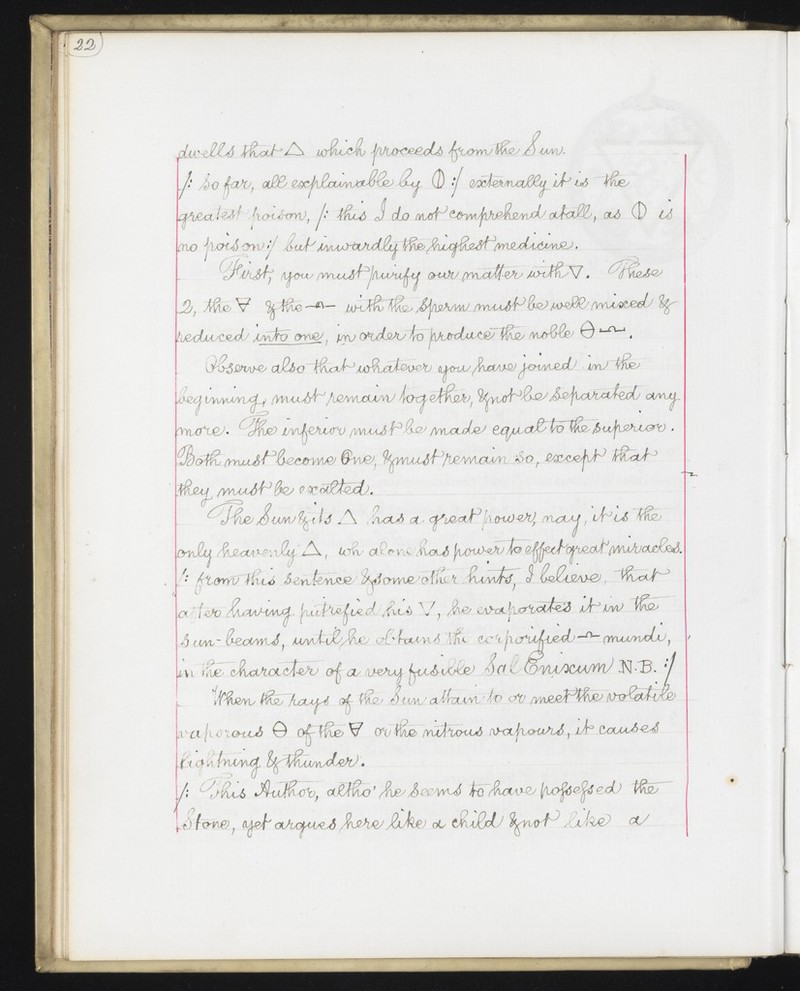 22
dwells that △ which proceeds from the Sun.
/: so far, all explainable by ⦶ :/ externally it is the
greatest poison, /: this I do not comprehend at all, as ⦶ is
no poison :/ but inwardly the highest medicine.
First, you must purify our matter with ▽. These
2, the 🜃 & the with the Sperm must be well mixed &
reduced into one, in order to produce the noble ⊖.
Observe also that whatever you have joined in the
beginning, must remain together, & not be separated any
more. The inferior must be made equal to the superior.
Both must become One, & must remain so, except that
they must be exalted.
The Sun & its △ has a great power, nay, it is the
only heavenly △, wh alone has power to effect great miracles.
/: from this sentence & some other hints, I believe, that
after having putrefied his ▽, he evaporates it in the
sun-beams, until he obtains the corporified mundi,
in the character of a very fusible Sal Enixum N.B. :/
When the rays of the Sun attain to or meet the volatile
vaporous ⊖ of the 🜃 or the nitrous vapours, it causes
lightning & thunder.
/: This Author, altho' he seems to have pofsefsed the
Stone, yet argues here like a child & not like a